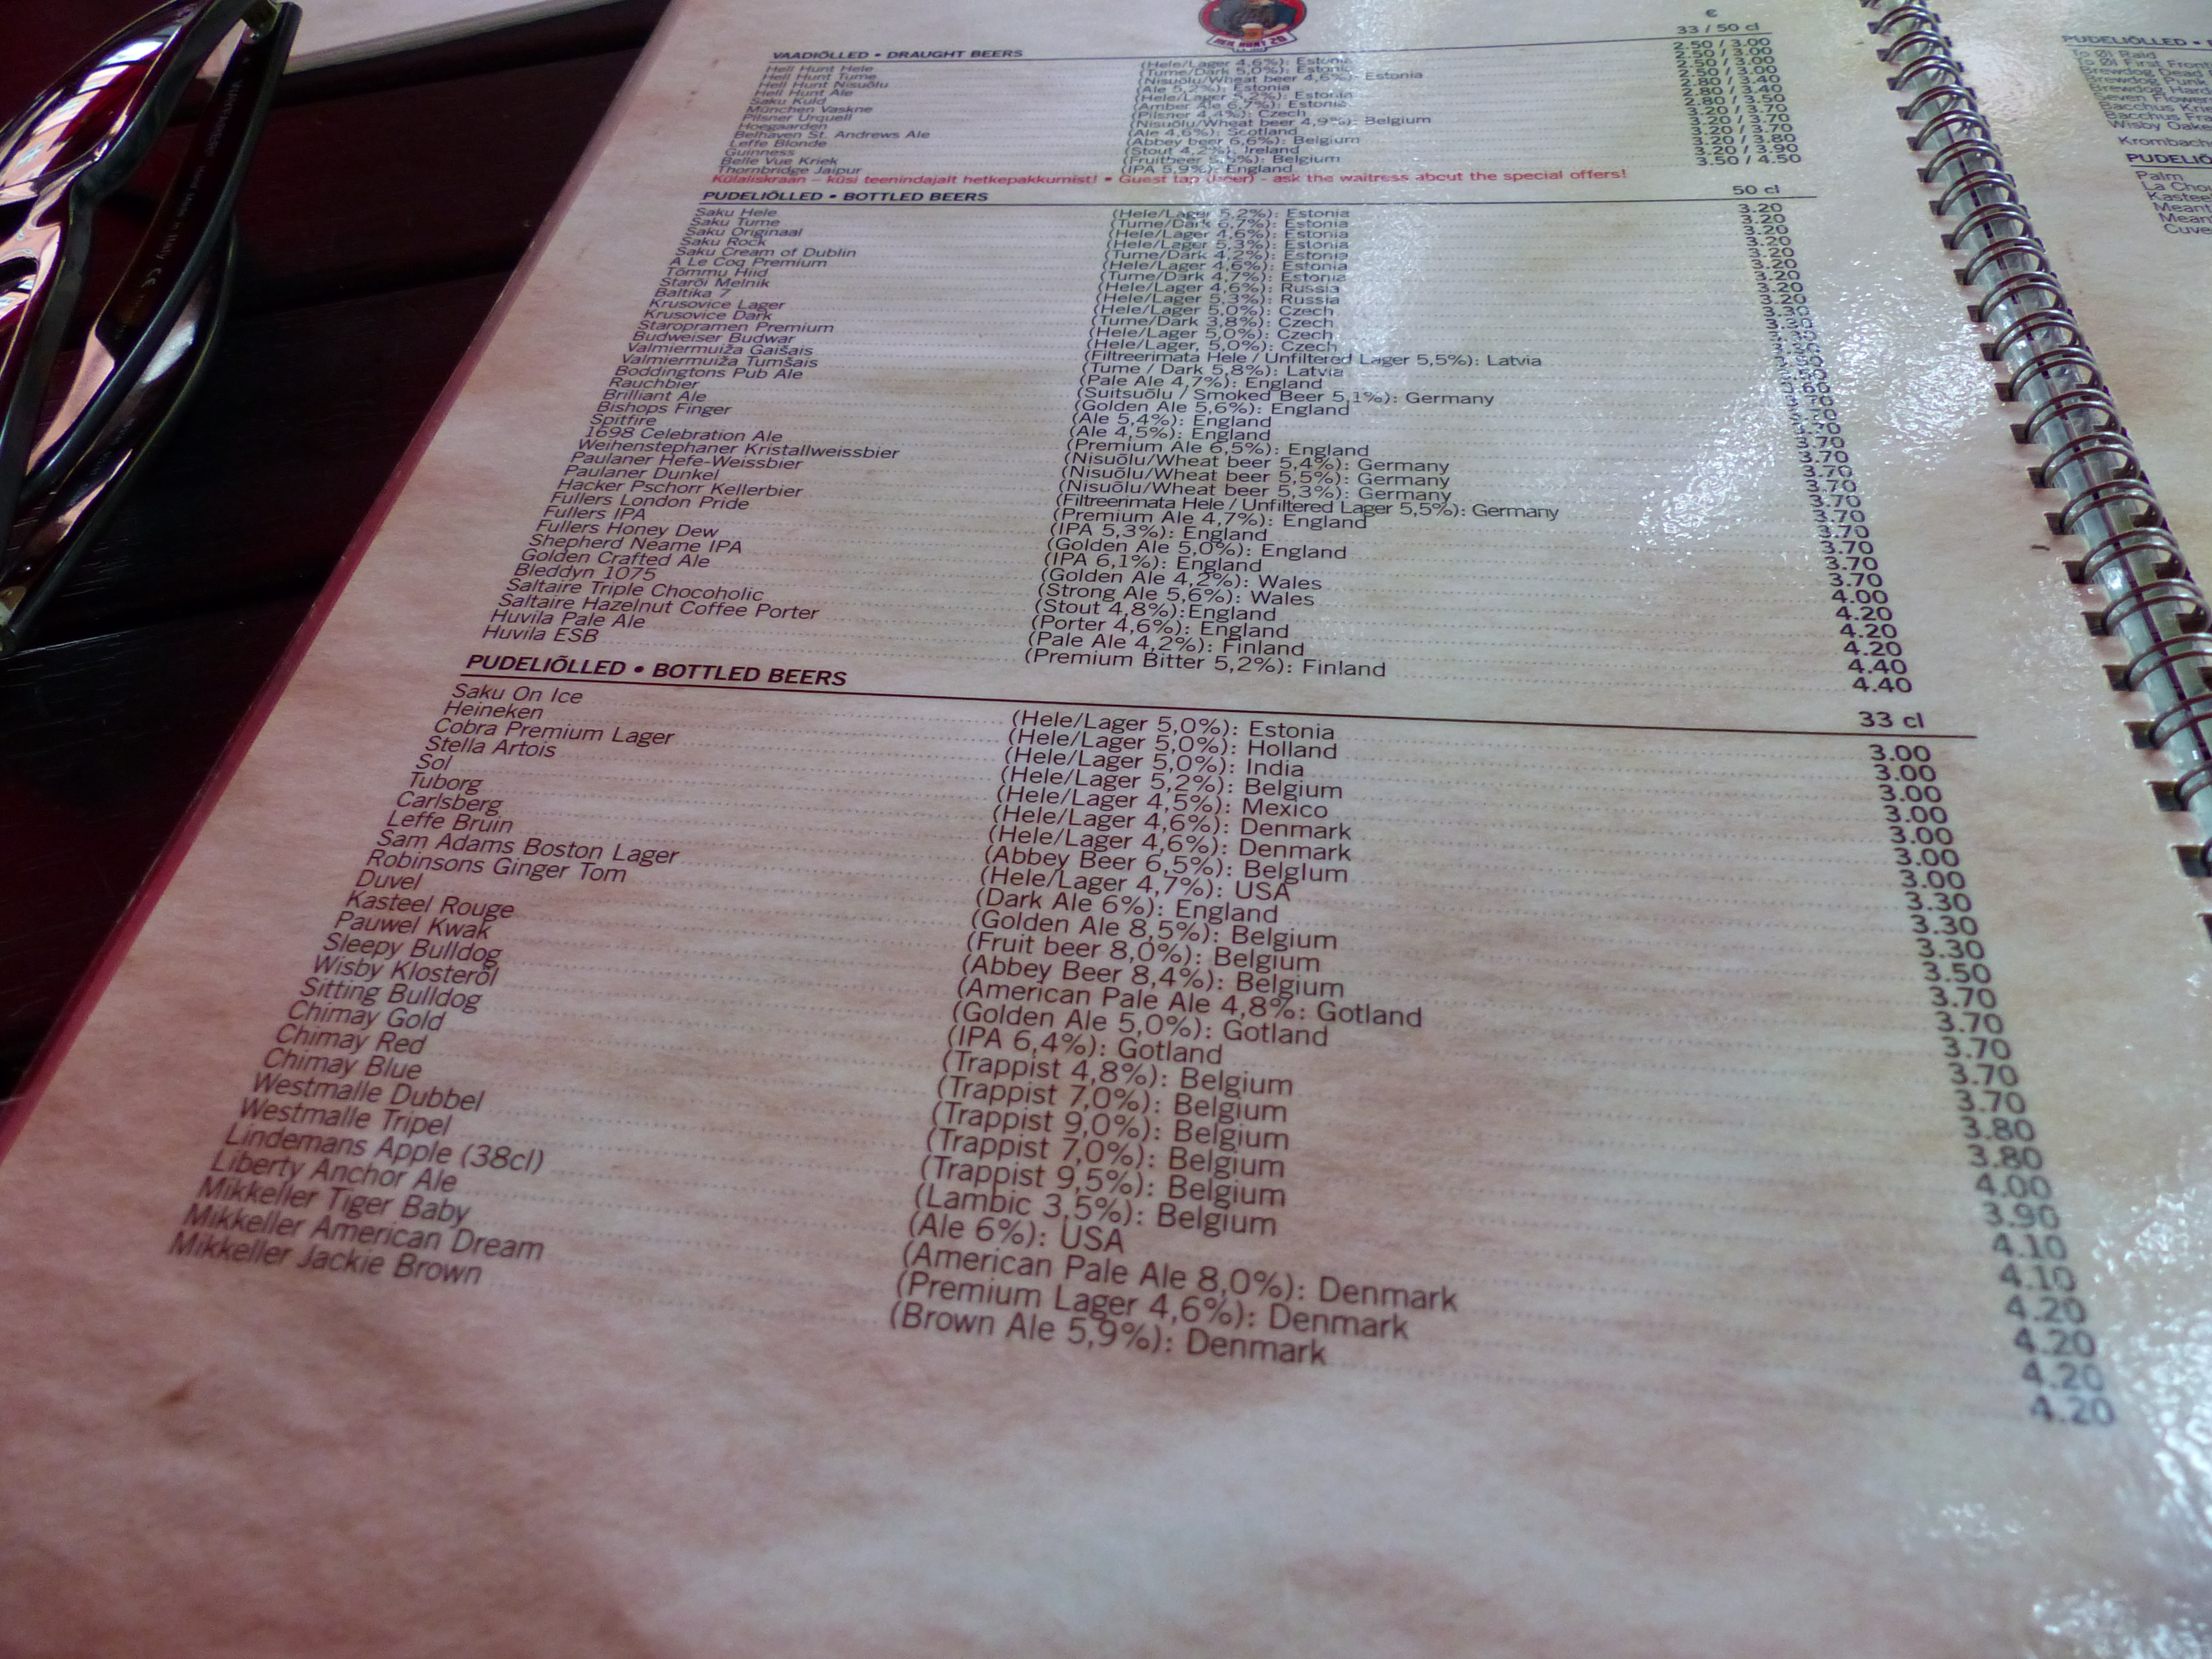 €
33 / 50 cl
VAADIÕLLED • DRAUGHT BEERS
Hell Hunt Hele (Hele/Lager 4,6%): Estonia 2.50 / 3.00
Hell Hunt Tume (Tume/Dark 5,0%): Estonia 2.50 / 3.00
Hell Hunt Nisuõlu (Nisuõlu/Wheat beer 4,6%): Estonia 2.50 / 3.00
Hell Hunt Ale (Ale 5,2%): Estonia 2.50 / 3.00
Saku Kuld (Hele/Lager 5,2%): Estonia 2.80 / 3.40
München Vaskne (Amber Ale 6,7%): Estonia 2.80 / 3.40
Pilsner Urquell (Pilsner 4,4%): Czech 2.80 / 3.50
Hoegaarden (Nisuõlu/Wheat beer 4,9%): Belgium 3.20 / 3.70
Belhaven St. Andrews Ale (Ale 4,6%): Scotland 3.20 / 3.70
Leffe Blonde (Abbey beer 6,6%): Belgium 3.20 / 3.70
Guinness (Stout 4,2%): Ireland 3.20 / 3.80
Belle Vue Kriek (Fruitbeer 5,5%): Belgium 3.20 / 3.90
Thornbridge Jaipur (IPA 5,9%): England 3.50 / 4.50
Külaliskraan – küsi teenindajalt hetkepakkumist! • Guest tap (beer) - ask the waitress about the special offers!
PUDELIÕLLED • BOTTLED BEERS 50 cl
Saku Hele (Hele/Lager 5,2%): Estonia 3.20
Saku Tume (Tume/Dark 6,7%): Estonia 3.20
Saku Originaal (Hele/Lager 4,6%): Estonia 3.20
Saku Rock (Hele/Lager 5,3%): Estonia 3.20
Saku Cream of Dublin (Tume/Dark 4,2%): Estonia 3.20
A Le Coq Premium (Hele/Lager 4,6%): Estonia 3.20
Tõmmu Hiid (Tume/Dark 4,7%): Estonia 3.20
Starõi Melnik (Hele/Lager 4,6%): Russia 3.20
Baltika 7 (Hele/Lager 5,3%): Russia 3.20
Krusovice Lager (Hele/Lager 5,0%): Czech 3.30
Krusovice Dark (Tume/Dark 3,8%): Czech 3.30
Staropramen Premium (Hele/Lager 5,0%): Czech
Budweiser Budwar (Hele/Lager, 5,0%): Czech
Valmiermuiža Gaišais (Filtreerimata Hele / Unfiltered Lager 5,5%): Latvia
Valmiermuiža Tumšais (Tume / Dark 5,8%): Latvia
Boddingtons Pub Ale (Pale Ale 4,7%): England
Rauchbier (Suitsuõlu / Smoked Beer 5,1%): Germany 3.70
Brilliant Ale (Golden Ale 5,6%): England 3.70
Bishops Finger (Ale 5,4%): England 3.70
Spitfire (Ale 4,5%): England 3.70
1698 Celebration Ale (Premium Ale 6,5%): England 3.70
Weihenstephaner Kristallweissbier (Nisuõlu/Wheat beer 5,4%): Germany 3.70
Paulaner Hefe-Weissbier (Nisuõlu/Wheat beer 5,5%): Germany 3.70
Paulaner Dunkel (Nisuõlu/Wheat beer 5,3%): Germany 3.70
Hacker Pschorr Kellerbier (Filtreerimata Hele / Unfiltered Lager 5,5%): Germany 3.70
Fullers London Pride (Premium Ale 4,7%): England 3.70
Fullers IPA (IPA 5,3%): England 3.70
Fullers Honey Dew (Golden Ale 5,0%): England 3.70
Shepherd Neame IPA (IPA 6,1%): England 3.70
Golden Crafted Ale (Golden Ale 4,2%): Wales 4.00
Bleddyn 1075 (Strong Ale 5,6%): Wales 4.20
Saltaire Triple Chocoholic (Stout 4,8%):England 4.20
Saltaire Hazelnut Coffee Porter (Porter 4,6%): England 4.20
Huvila Pale Ale (Pale Ale 4,2%): Finland 4.40
Huvila ESB (Premium Bitter 5,2%): Finland 4.40
PUDELIÕLLED • BOTTLED BEERS 33 cl
Saku On Ice (Hele/Lager 5,0%): Estonia 3.00
Heineken (Hele/Lager 5,0%): Holland 3.00
Cobra Premium Lager (Hele/Lager 5,0%): India 3.00
Stella Artois (Hele/Lager 5,2%): Belgium 3.00
Sol (Hele/Lager 4,5%): Mexico 3.00
Tuborg (Hele/Lager 4,6%): Denmark 3.00
Carlsberg (Hele/Lager 4,6%): Denmark 3.00
Leffe Bruin (Abbey Beer 6,5%): Belgium 3.30
Sam Adams Boston Lager (Hele/Lager 4,7%): USA 3.30
Robinsons Ginger Tom (Dark Ale 6%): England 3.30
Duvel (Golden Ale 8,5%): Belgium 3.50
Kasteel Rouge (Fruit beer 8,0%): Belgium 3.70
Pauwel Kwak (Abbey Beer 8,4%): Belgium 3.70
Sleepy Bulldog (American Pale Ale 4,8%: Gotland 3.70
Wisby Klosteröl (Golden Ale 5,0%): Gotland 3.70
Sitting Bulldog (IPA 6,4%): Gotland 3.70
Chimay Gold (Trappist 4,8%): Belgium 3.80
Chimay Red (Trappist 7,0%): Belgium 3.80
Chimay Blue (Trappist 9,0%): Belgium 4.00
Westmalle Dubbel (Trappist 7,0%): Belgium 3.90
Westmalle Tripel (Trappist 9,5%): Belgium 4.10
Lindemans Apple (38cl) (Lambic 3,5%): Belgium 4.10
Liberty Anchor Ale (Ale 6%): USA 4.20
Mikkeller Tiger Baby (American Pale Ale 8,0%): Denmark 4.20
Mikkeller American Dream (Premium Lager 4,6%): Denmark 4.20
Mikkeller Jackie Brown (Brown Ale 5,9%): Denmark 4.20
PUDELIÕLLED •
To Øl Raid
To Øl First Front
Brewdog Dead
Brewdog Punk
Brewdog Hard
Bacchus
Bacchus
Wisby
Krombach
PUDELIÕ
Palm
La Cho
Kasteel
Meant
Mean
Cuve